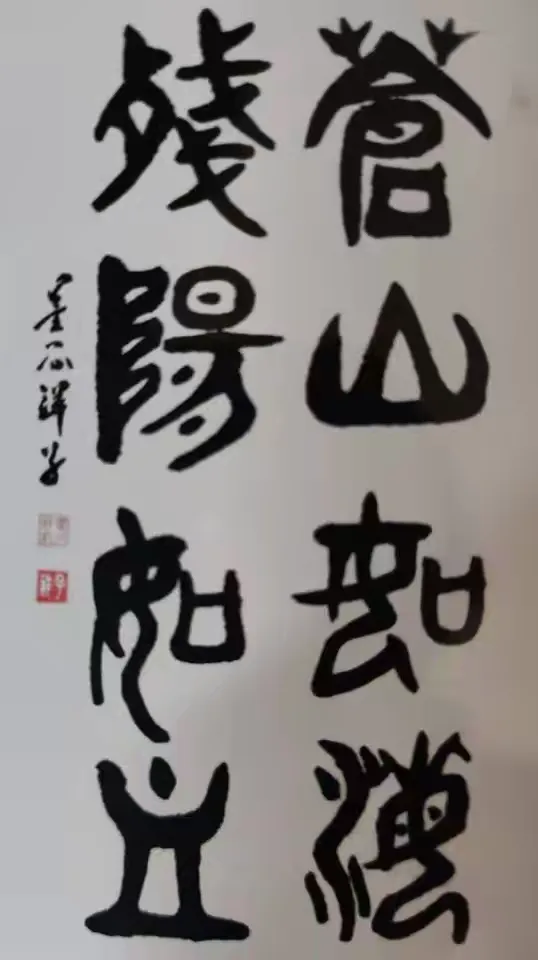 蒼山如海
殘陽如血